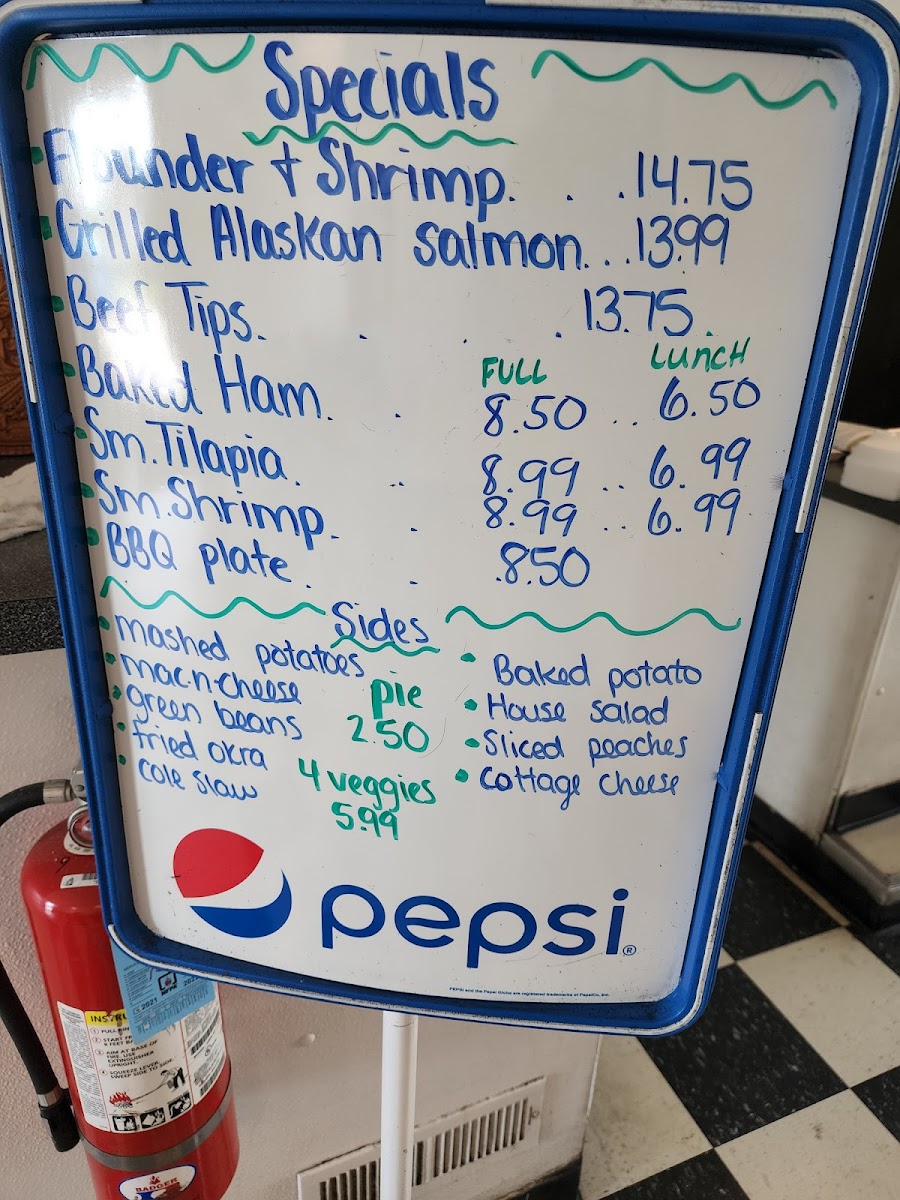 Specials
Flounder + Shrimp. . . 14.75
Grilled Alaskan salmon... 13.99
Beef Tips. . . . 13.75.
FULL LUNCH
Baked Ham. . 8.50 .. 6.50
Sm. Tilapia. .. 8.99 .. 6.99
Sm. Shrimp. . 8.99 .. 6.99
BBQ plate. . .8.50
Sides
mashed potatoes
mac-n-cheese
green beans
fried okra
cole slaw
pie
2.50
4 veggies
5.99
Baked potato
House salad
Sliced peaches
cottage cheese
pepsi®
PEPSI and the Pepsi Globe are registered trademarks of PepsiCo, Inc.
2021
AIM AT BASE OF
FIRE. USE
EXTINGUISHER
UPRIGHT.
SQUEEZE LEVER,
SWEEP SIDE TO SIDE.
BADGER